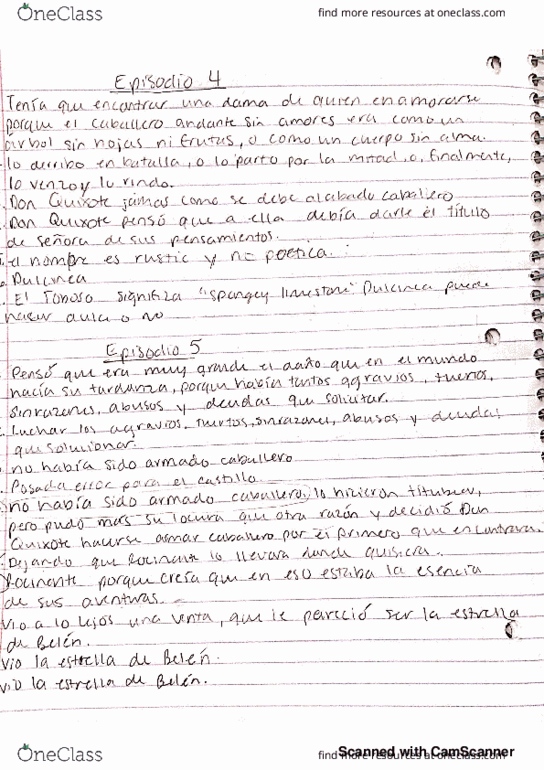 OneClass find more resources at oneclass.com
Episodio 4
Tenía que encontrar una dama de quien enamorarse
porque el caballero andante sin amores era como un
arbol sin hojas ni frutas, o como un cuerpo sin alma.
lo derribo en batalla, o lo parto por la mitad, o, finalmente,
lo venzo y lo rindo.
Don Quixote jámas como se debe alabado caballero
Don Quixote pensó que a ella debía darle el título
de señora de sus pensamientos.
el nombre es rustic y no poetica.
Dulcinea
El Toboso signifiza "spongey limestone" Dulcinea puede
hacer aula o no
Episodio 5
Pensó que era muy grande el daño que en el mundo
hacía su tardanza, porque habían tantos agravios, tuertos,
sinrazones, abusos y deudas que solicitar.
Luchar los agravios, tuertos, sinrazones, abusos y deudas
que solucionar.
no había sido armado caballero
Posada error para el castillo
no había sido armado caballero, lo hizieron titubear,
pero pudo mas su locura que otra razón y decidió Don
Quixote hacerse armar caballero por el primero que encontrara.
Dejando que Rocinante lo llevara donde quisiera.
Rocinante porque creía que en eso estaba la esencia
de sus aventuras.
vio a lo lejos una venta, que le pareció ser la estrella
de Belén.
vio la estrella de Belén.
vio la estrella de Belén.
OneClass find more resources at oneclass.com
Scanned with CamScanner